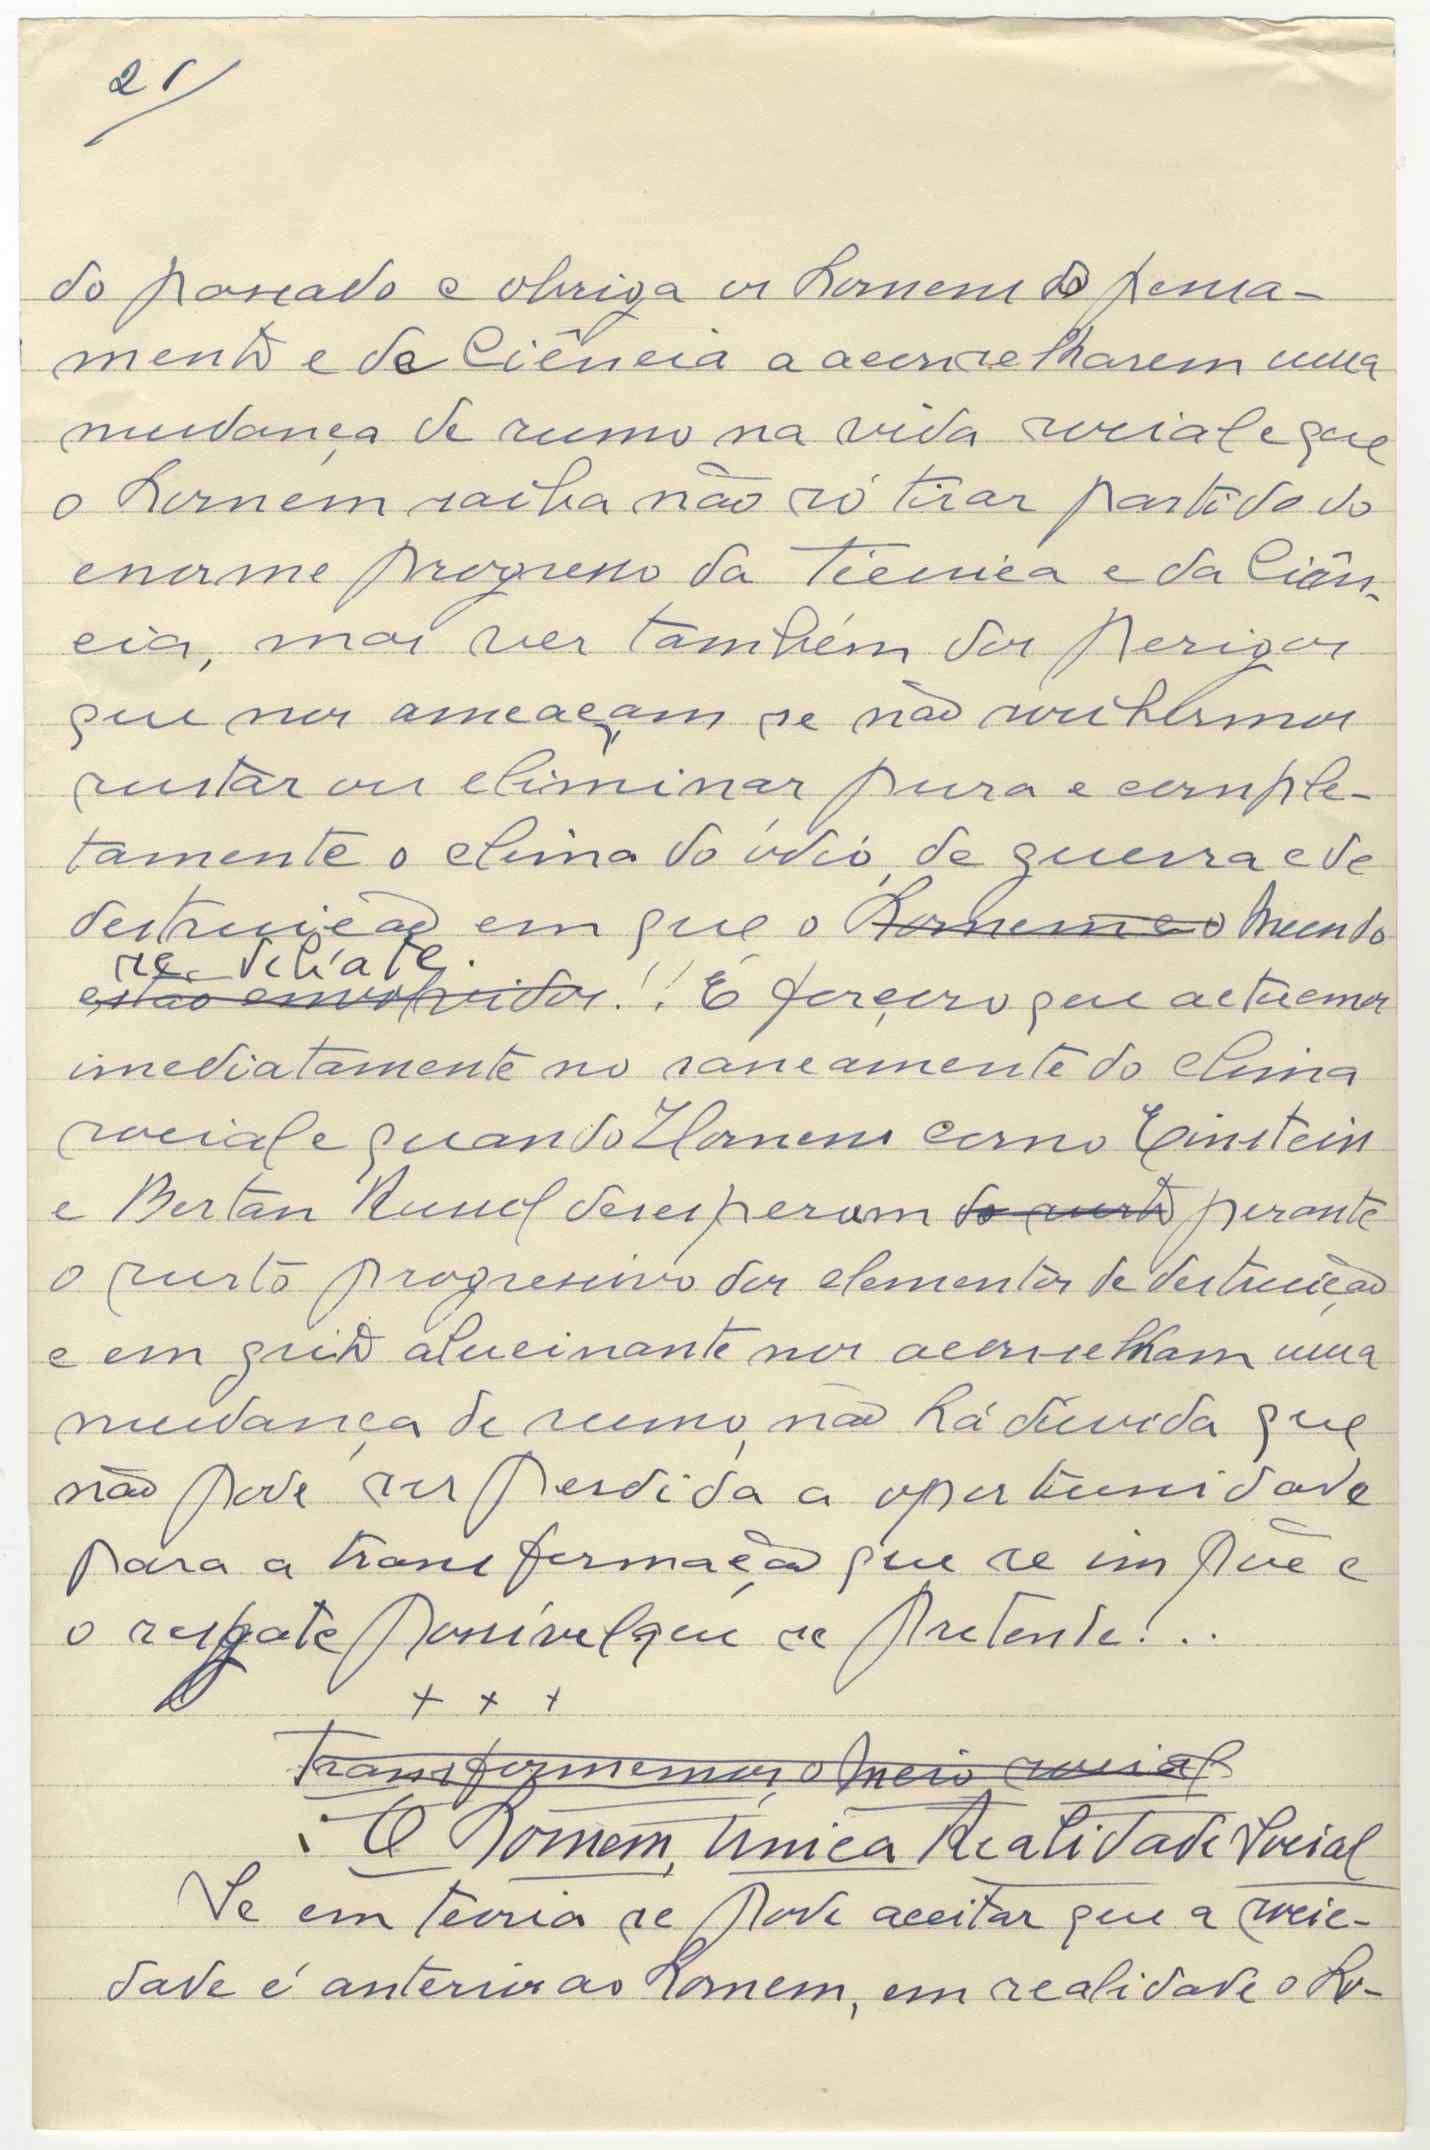 21/
do passado e obriga os homens do pensa-
mento e da Ciência a aconselharem uma
mudança de rumo na vida social e que
o homem saiba não só tirar partido do
enorme progresso da Técnica e da Ciên-
cia, mas ver também dos perigos
que nos ameaçam se não soubermos
sustar ou eliminar pura e comple-
tamente o clima do ódio, de guerra e de
destruição em que o homem e o Mundo
se debate.
estão envolvidos!! É forçoso que actuemos
imediatamente no saneamente do clima
social e quando Homens como Einstein
e Bertan Russel desesperam do surto perante
o surto progressivo dos elementos de destruição
e em grito alucinante nos aconselham uma
mudança de rumo, não há dúvida que
não pode ser perdida a oportunidade
para a transformação que se impõe e
o resgate possível que se pretende...
+ + +
Transformemos o meio social
O Homem, Única Realidade Social
Se em teoria se pode aceitar que a socie-
dade é anterior ao homem, em realidade o ho-